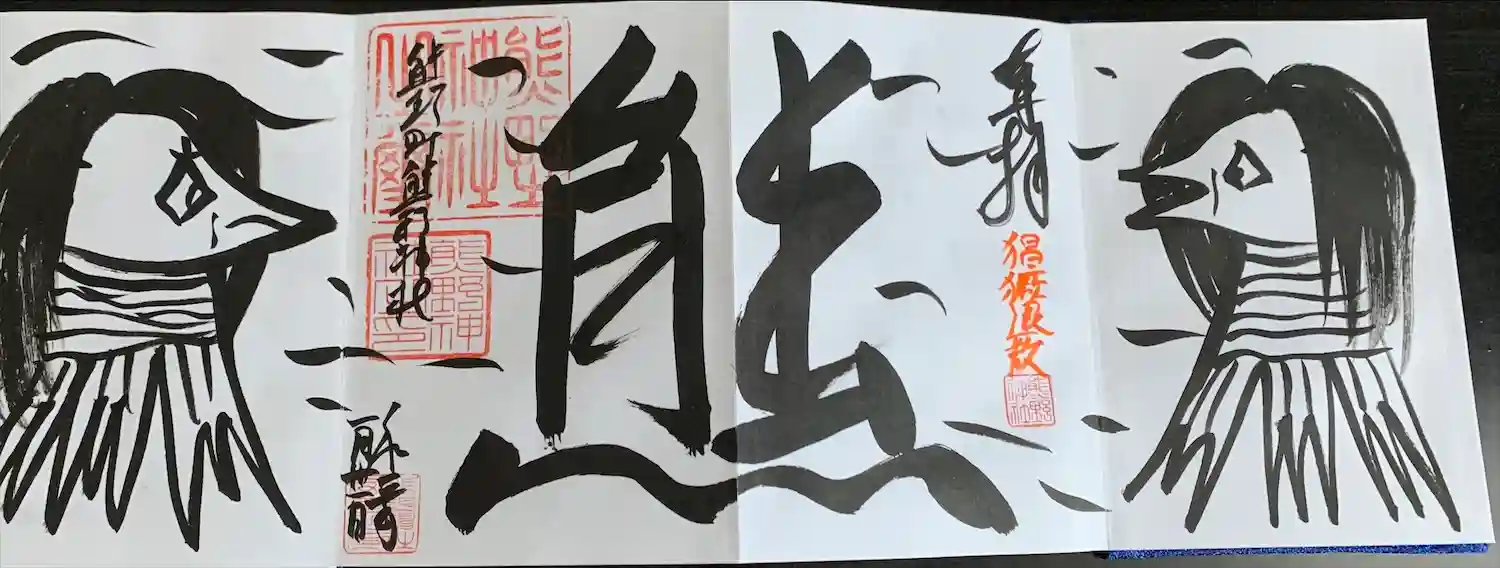 奉拝
猖獗退散
熊野神社
熊
熊野町熊野神社
熊野神社
熊野神社之印